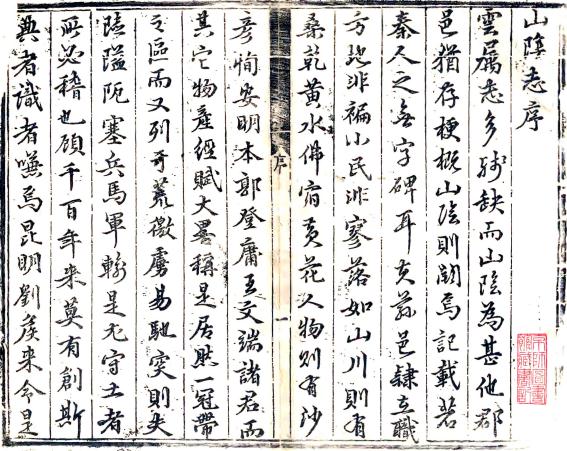 山陰志序
雲屬志多殘缺而山陰為甚他郡
邑猶存梗概山陰則闕焉記載若
秦人之無字碑耳夫茲邑隸在職
方地非褊小民非寥落如山川則有
桑乾黃水佛宿黃花人物則有沙
序
一
彥恂安明本郭登庸王文端諸君而
其它物產經賦大畧稱是居然一冠帶
之區而又列于荒徼虜易馳突則夫
險隘阨塞兵馬軍輸是尤守土者
所必稽也顧千百年來莫有創斯
典者識者嘅焉昆明劉侯來令是
京師圖書
館藏書記